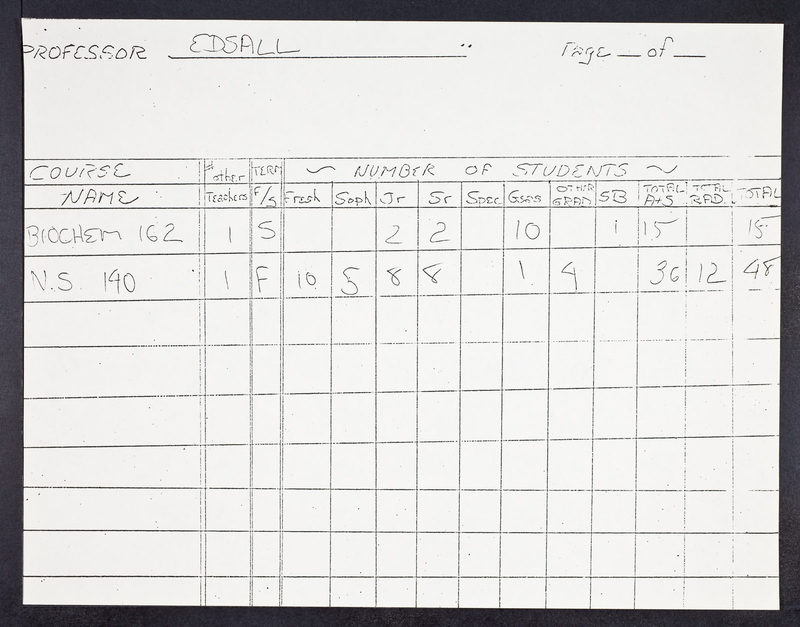 PROFESSOR EDSALL Page __ of __
COURSE # other TERM ~ NUMBER OF STUDENTS ~
NAME Teachers F/S Fresh Soph Jr Sr Spec Gsas OTHER GRAD SB TOTAL A+S TOTAL RAD. TOTAL
BIOCHEM 162 1 S 2 2 10 1 15 15
N.S. 140 1 F 10 5 8 8 1 4 36 12 48